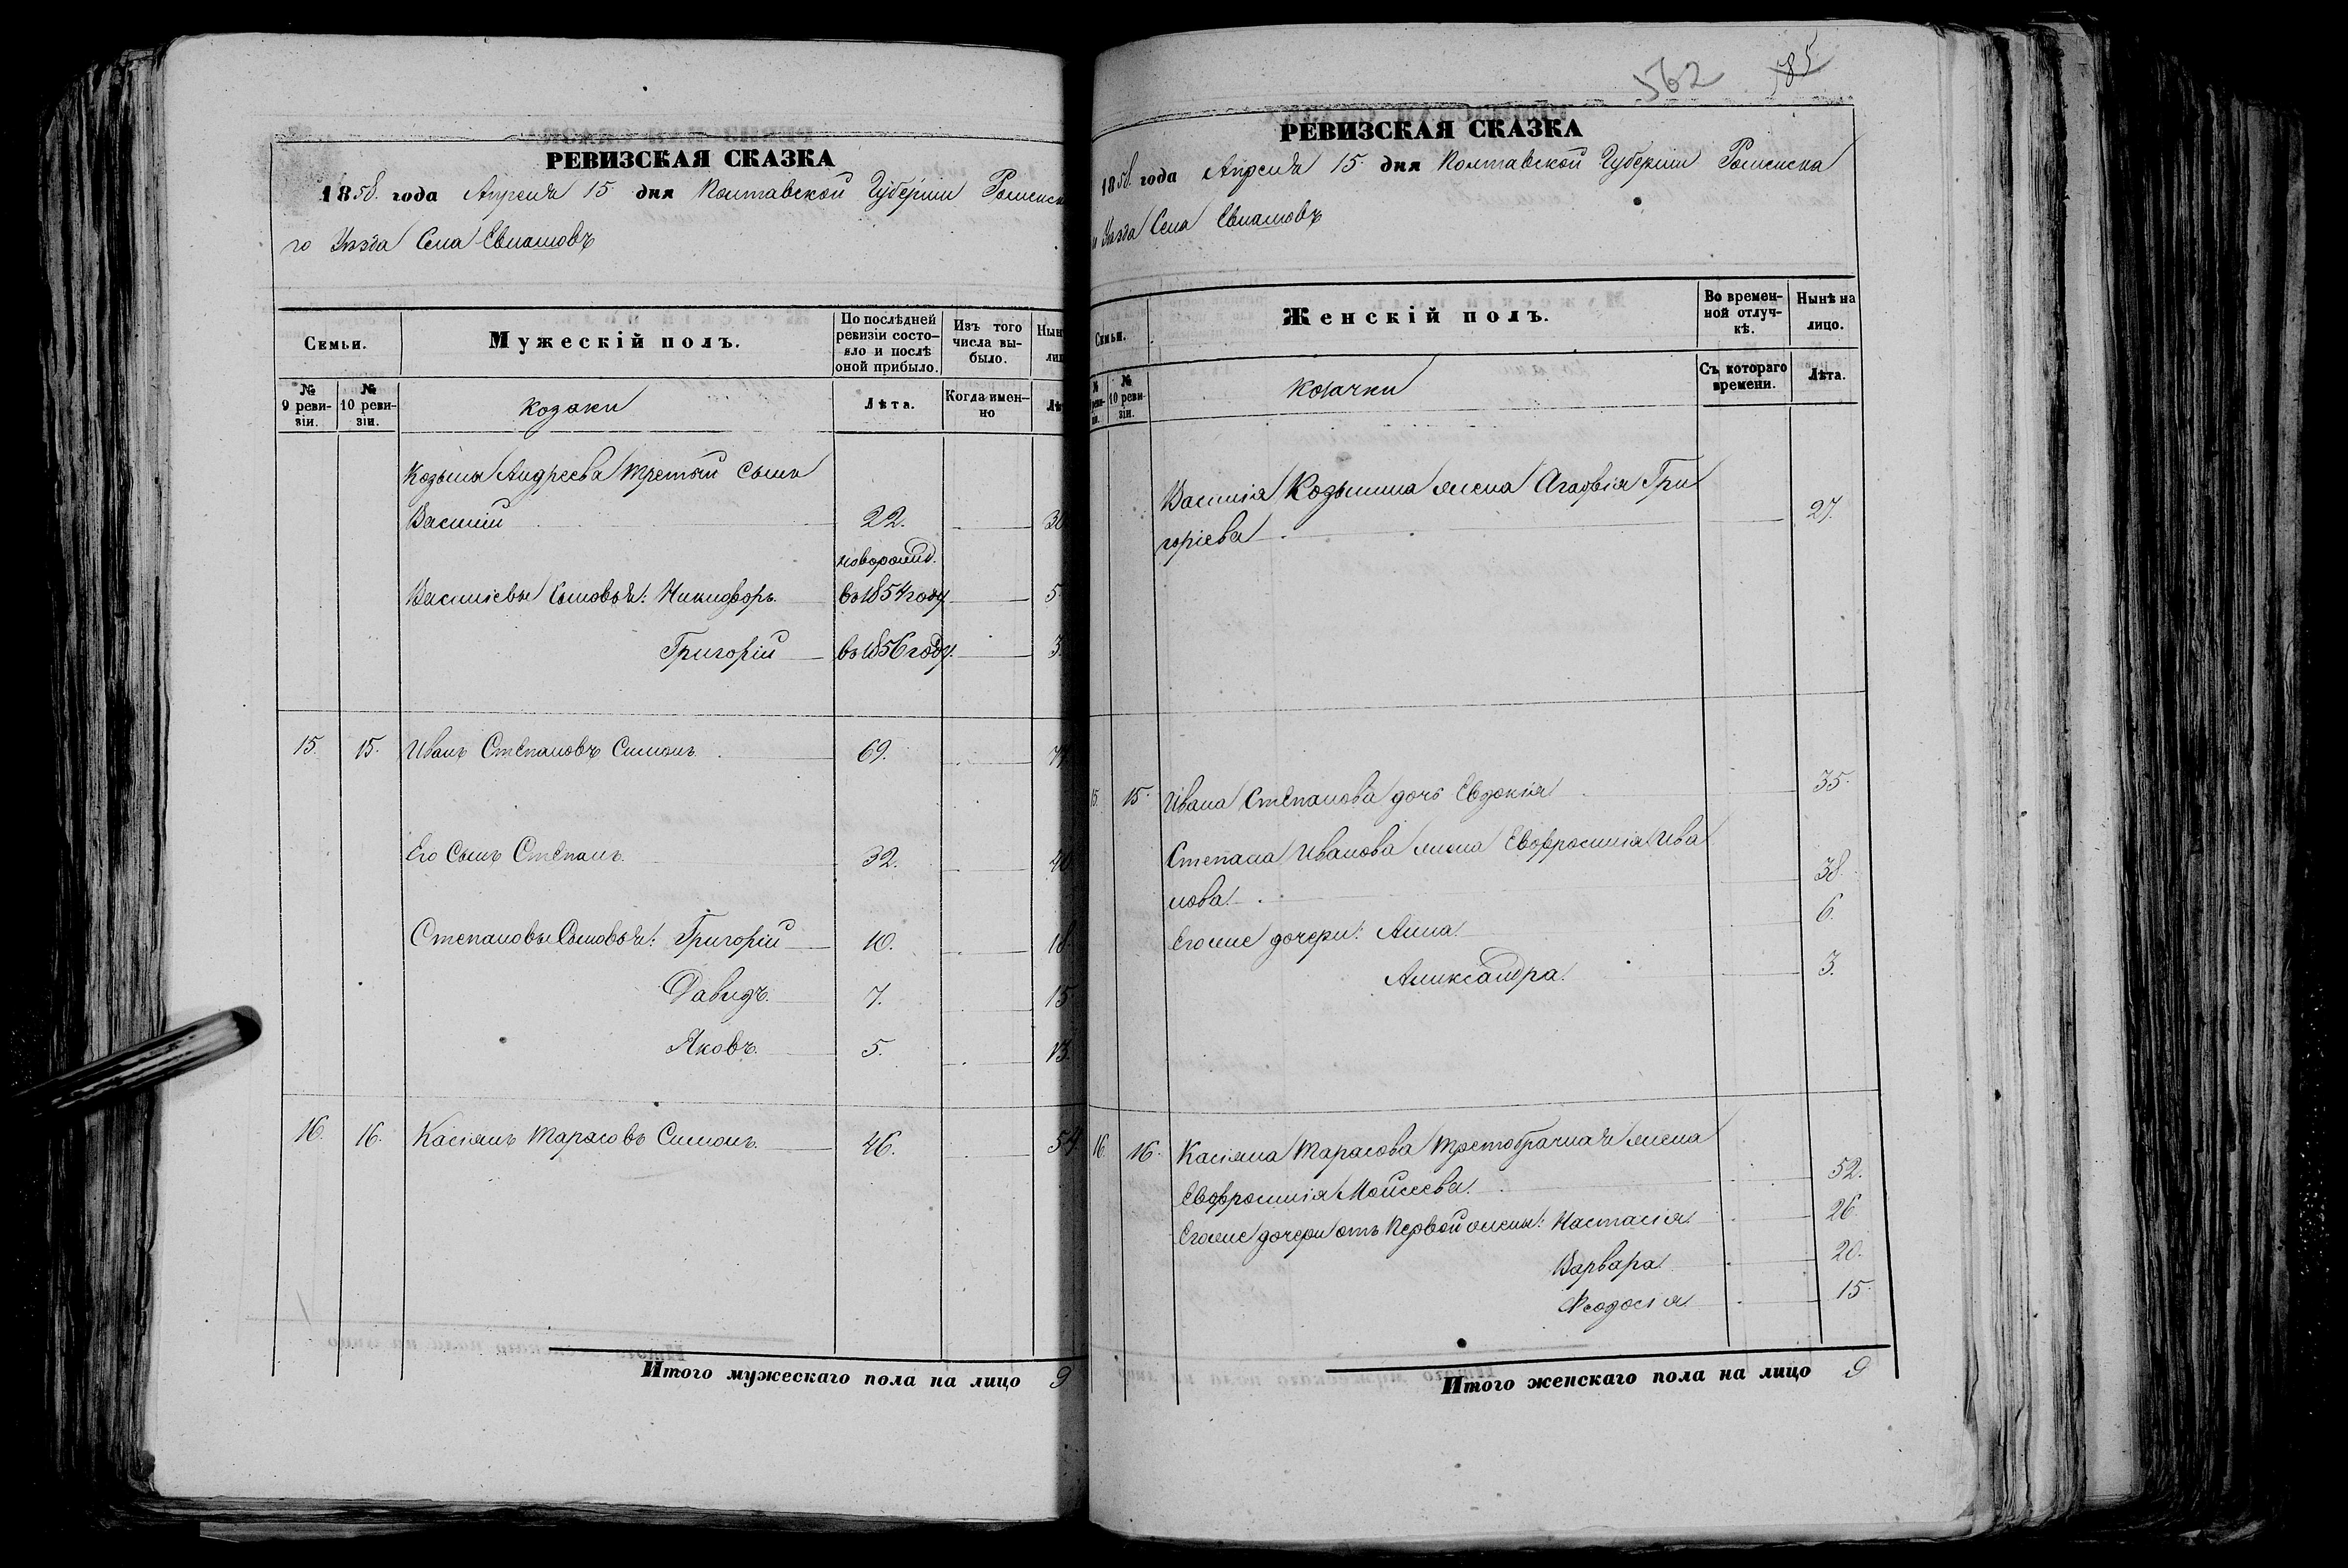 РЕВИЗСКАЯ СКАЗКА
1858. года Апреля 15 дня Полтавской Губерніи Роменска
го Уезда Села Свиловъ
Семьи.
Мужескій полъ.
По послѣдней ревизіи состо-яло и послѣ оной прибыло.
Изъ того числа вы-было.
№ 9 реви-зіи.
№ 10 реви-зіи.
Козаки
Лѣта.
Когда имен-но
Козьмы Андреева третій сынъ
Василій 22. 30
новорожд.
Василіевы Сыновья: Никифоръ въ 1854 году 5
Григорій въ 1856 году. 3
15. 15. Иванъ Степановъ Симонъ 69. 77
Его Сынъ Степанъ 32. 40
Степановы Сыновья: Григорій 10. 18.
Давидъ. 7. 15
Яковъ. 5. 13.
16. 16. Касіянъ Тарасовъ Симонъ. 46. 54
Итого мужескаго пола на лицо 9
562 185
РЕВИЗСКАЯ СКАЗКА
1858. года Апреля 15 дня Полтавской Губерніи Роменска
Уезда Села
Семьи.
Женскій полъ.
Во времен-ной отлуч-кѣ.
Нынѣ на лицо.
№ 10 реви-зіи.
Козачки
Съ котораго времени.
Лѣта.
Василія Козьмина жена Агафія Гри
горіева 27.
15. 15. Ивана Степанова дочь Евдокія 35.
Степана Иванова жена Евфросинія Ива
нова 38.
Егоже дочери: Анна 6.
Александра 3.
16. 16. Касіяна Тарасова третобрачная жена
Евфросинія Мойсеева. 52.
Егоже дочери отъ первой жены: Настасія 26
Варвара 20.
Феодосія 15
Итого женскаго пола на лицо 9